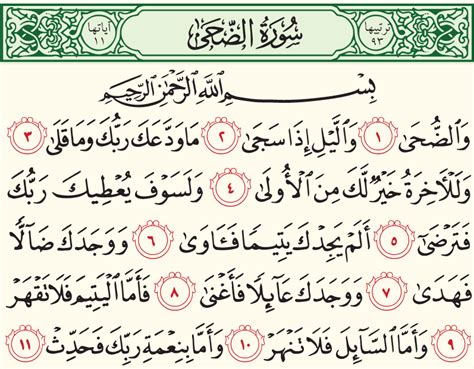 ترتيبها ٩٣ سُورَةُ الضُّحَىٰ آياتها ١١
بِسْمِ اللَّهِ الرَّحْمَٰنِ الرَّحِيمِ
وَٱلضُّحَىٰ ١ وَٱلَّيْلِ إِذَا سَجَىٰ ٢ مَا وَدَّعَكَ رَبُّكَ وَمَا قَلَىٰ ٣
وَلَلْآخِرَةُ خَيْرٌ لَّكَ مِنَ ٱلْأُولَىٰ ٤ وَلَسَوْفَ يُعْطِيكَ رَبُّكَ
فَتَرْضَىٰ ٥ أَلَمْ يَجِدْكَ يَتِيمًا فَـَٔاوَىٰ ٦ وَوَجَدَكَ ضَآلًّا
فَهَدَىٰ ٧ وَوَجَدَكَ عَآئِلًا فَأَغْنَىٰ ٨ فَأَمَّا ٱلْيَتِيمَ فَلَا تَقْهَرْ
٩ وَأَمَّا ٱلسَّآئِلَ فَلَا تَنْهَرْ ١٠ وَأَمَّا بِنِعْمَةِ رَبِّكَ فَحَدِّثْ ١١